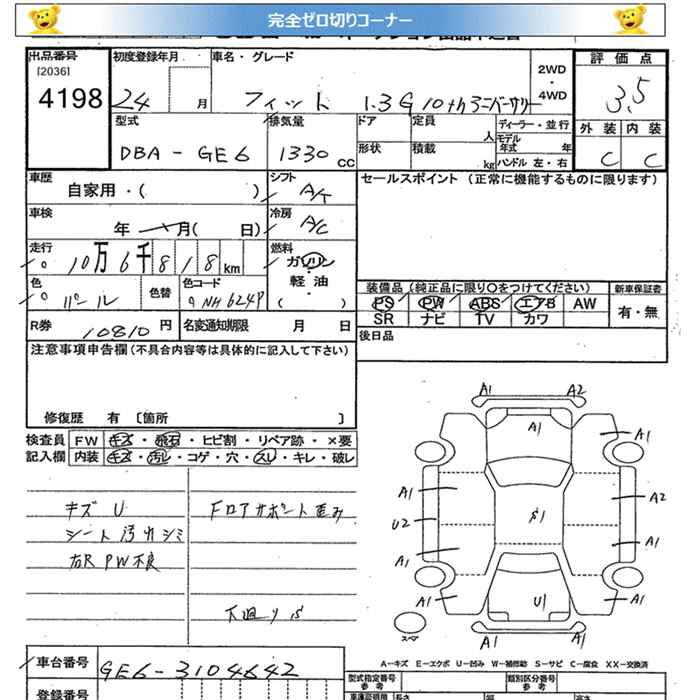 完全ゼロ切りコーナー
出品番号
[2036]
4198
初度登録年月
24 月
車名・グレード
フィット 1.3G 10thアニバーサリー
2WD
・
4WD
評価点
3.5
外装 内装
C C
型式
DBA-GE6
排気量
1330 cc
ドア
定員
人
形状
積載
kg
ディーラー・並行
モデル
年式 年
ハンドル 左・右
車歴
自家用・( )
シフト
A/T
セールスポイント (正常に機能するものに限ります)
車検
年 月( 日)
冷房
A/C
走行
10万6千818km
燃料
ガソリン
軽油
( ・ )
色
パール
色替
色コード
NH624P
装備品 (純正品に限り○をつけてください)
PS PW ABS エアB AW
SR ナビ TV カワ
新車保証書
有・無
R券
10810円
名変通知期限 月 日
後日品
注意事項申告欄(不具合内容等は具体的に記入して下さい)
修復歴 有 〔箇所 〕
検査員
記入欄
FW キズ・飛石・ヒビ割・リペア跡・×要
内装 キズ・汚レ・コゲ・穴・スレ・キレ・破レ
キズ U
シート汚れシミ
右R PW不良
フロアサポート歪み
下廻りS
A1 A2
A1
A1
A1
A2
U2
S1
A1
A1
A1
U1
A1
A1 A1
スペア
A-キズ E-エクボ U-凹み W-補修跡 S-サビ C-腐食 XX-交換済
車台番号
GE6-3104642
登録番号
型式指定番号
参考
類別区分番号
参考
長さ
幅
高さ